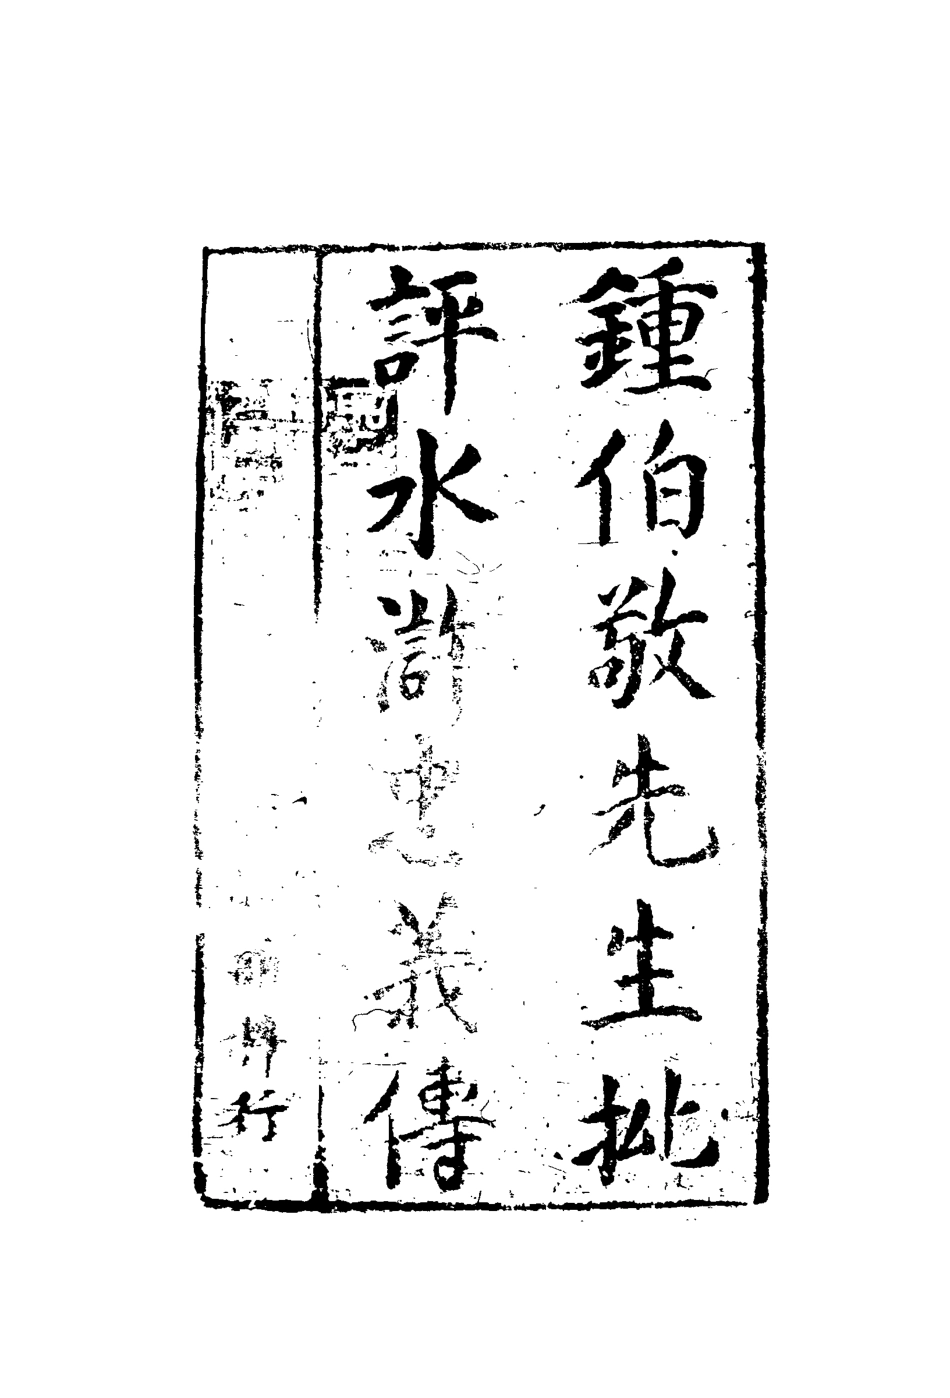 鍾伯敬先生批
評水滸忠義傳
刊行